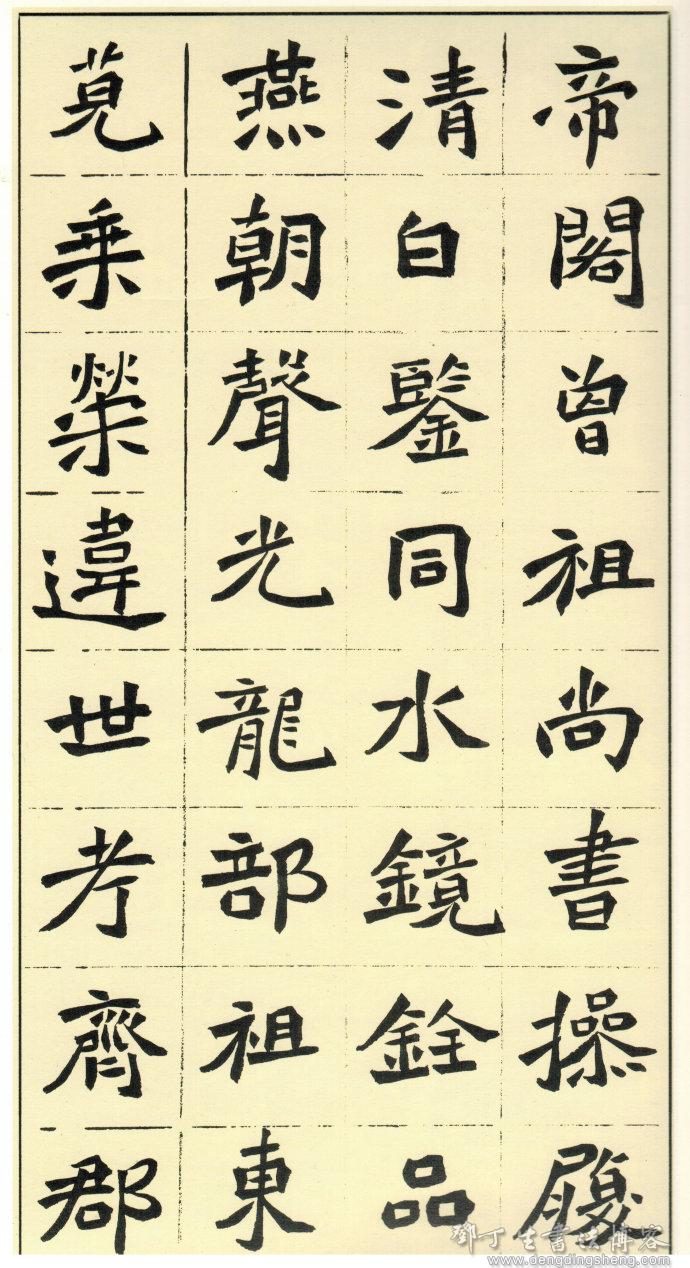 帝閣曾祖尚書操履
清白鑒同水鏡銓品
燕朝聲光龍部祖東
莧乗榮違世考齊郡
鄧丁生書法博客
www.dengdingsheng.com